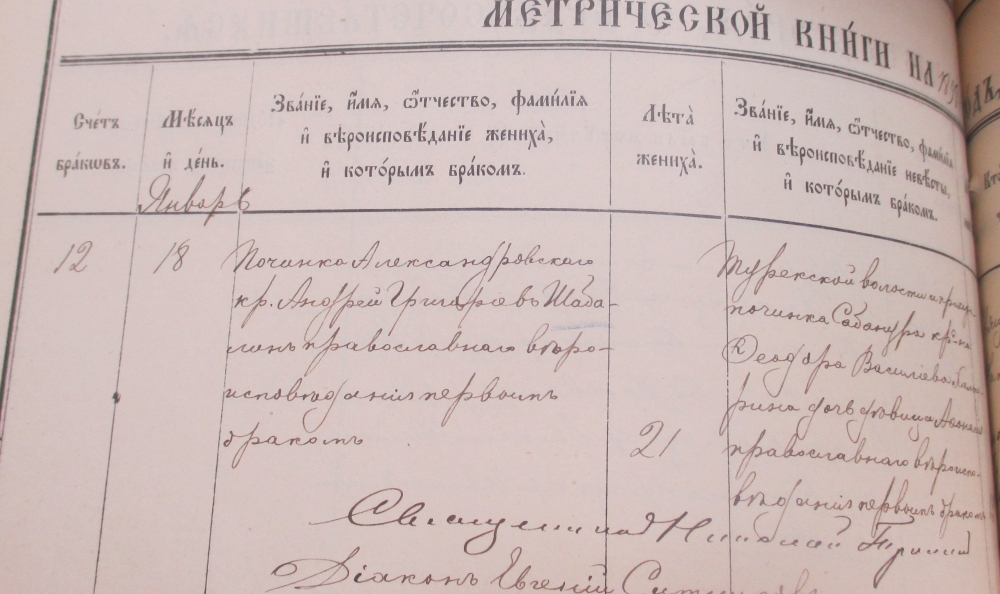 МЕТРИЧЕСКОЙ КНИ́ГИ НА
Сче́тъ
бра́кѡвъ.
Мѣ́сяцъ
и҆ де́нь.
Январь
Зва́нїе, и҆́мя, ѻ҆́тчество, фами́лїя
и҆ вѣроисповѣ́данїе жениха̀,
и҆ кото́рымъ бра́комъ.
Лѣта̀
жениха̀.
Зва́нїе, и҆́мя, ѻ҆́тчество, фами́лїя
и҆ вѣроисповѣ́данїе невѣ́сты,
и҆ кото́рымъ бра́комъ.
12
18
Починка Александровскаго
кр. Андрей Григорьевъ Шаба-
линъ православнаго вѣро-
исповѣданія первымъ
бракомъ
21
Турекской волости
починка Сабанура
Ѳеодора Васильева
рина дочь дѣвица
православнаго вѣроиспо-
вѣданія первымъ бракомъ
Священникъ Николай
Діаконъ Евгеній